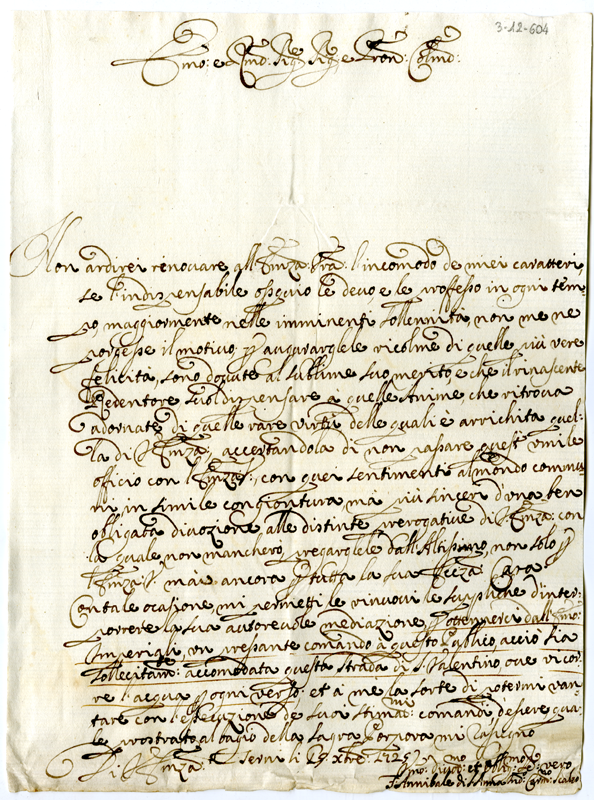 3-12-604
Emo: e Rmo: Sigre Sigre e Pron: Colmo:
Non ardirei renovare all'Emza: Vra: l'incomodo de miei caratteri,
se l'indispensabile ossequio le devo, e le professo in ogni tem-
po, maggiormente nelle imminenti sollennità, non me ne
porgesse il motivo, p augurargele ricolme di quelle più vere
felicità, sono dovute al sublime suo merito, e che il rinascente
Redentore suol dispensare à quelle Anime che ritroua
adornate di quelle rare virtù delle quali è arrichita quel-
la di V. Emza:, accertandola di non passare quest' umile
officio con l'Emza: V:, con quei sentimenti al mondo commu-
ni in simile congiontura, mà più sinceri d'una ben
obligata divozione alle distinte prerogative di V. Emza: con
la quale non mancherò pregargele dall'Altissimo, non solo p
l'Emza: V: mà ancora p tutta la sua Ecc:za Casa
Con tale ocasione, mi permetti le rinuovi le suppliche d'inter-
porre la sua autoreuole mediazione, p ottenerci dall'Emo:
Imperiali, un pressante comando à questo Publico, acciò sia
sollecitamte: accomodata questa strada di S. Valentino, oue vi cor-
re l'acqua p ogni verso: et à me la sorte di potermi van-
tare con l'esecuzione de suoi stimami comandi, desidero qua-
le prostrato al bacio della Sagra Porpora mi rassegno
Di V. Emza: Terni li 29 Xbre
Umo: divmo: et obligmo: serre vero
F. Annibale di S. Anna Carmno Scalzo